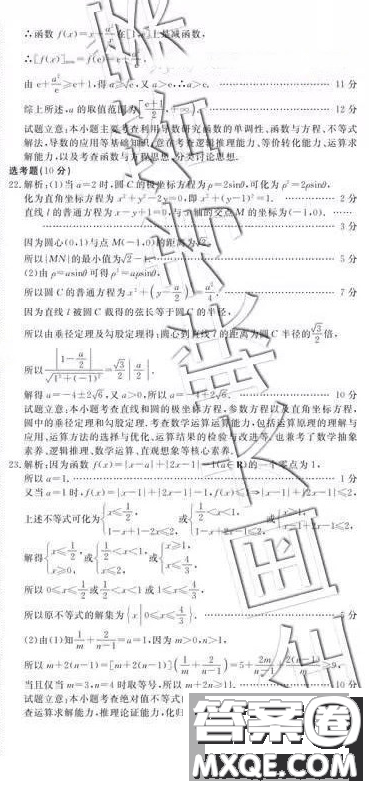 ∴函数 f(x)=x+a²/x在[1,e]上是减函数,
∴[f(x)]min=f(e)=e+a²/e.
由 e+a²/e≥e+1,得 a≥√e,又 a>e,∴a>e. 11 分
综上所述,a 的取值范围为[(e+1)/2,+∞). 12 分
试题立意:本小题主要考查利用导数研究函数的单调性,函数与方程、不等式
解法,导数的应用等基础知识;意在考查逻辑推理能力、等价转化能力、运算求
解能力,以及考查函数与方程思想、分类讨论思想.
选考题(10 分)
22.解析:(1)当 a=2 时,圆 C 的极坐标方程为 ρ=2sinθ,可化为 ρ²=2ρsinθ,
化为直角坐标方程为 x²+y²-2y=0,即 x²+(y-1)²=1. 2 分
直线 l 的普通方程为 x-y+1=0,与 x 轴的交点 M 的坐标为(-1,0).
3 分
因为圆心(0,1)与点 M(-1,0)的距离为√2,
所以|MN|的最小值为√2-1. 5 分
(2)由 ρ=asinθ 可得 ρ²=aρsinθ,
所以圆 C 的普通方程为 x²+(y-a/2)²=a²/4. 7 分
因为直线 l 被圆 C 截得的弦长等于圆 C 的半径,
所以由垂径定理及勾股定理得:圆心到直线 l 的距离为圆 C 半径的√3/2倍,
所以|1-a/2|/√(1²+(-1)²)=√3/2|a/2|.
解得 a=-4±2√6,又 a>0,所以 a=-4+2√6. 10 分
试题立意:本小题考查直线和圆的极坐标方程,参数方程以及直角坐标方程,
圆中的垂径定理和勾股定理.考查数学运算运算能力,包括运算原理的理解与
应用、运算方法的选择与优化、运算结果的检验与改进等.也兼考了数学抽象
素养、逻辑推理、数学运算、直观想象等核心素养.
23.解析:因为函数 f(x)=|x-a|+|2x-1|-1(a∈R)的一个零点为 1,
所以 a=1. 1 分
又当 a=1 时,f(x)=|x-1|+|2x-1|-1,f(x)≤1⇒|x-1|+|2x-1|≤2,
上述不等式可化为{x≤1/2, 1-x+1-2x≤2, 或{1/2<x<1, 1-x+2x-1≤2, 或{x≥1, x-1+2x-1≤2,
解得{x≤1/2, x≥0, 或{1/2<x<1, x≤2, 或{x≥1, x≤4/3,
所以 0≤x≤1/2或1/2<x<1 或 1≤x≤4/3,
所以原不等式的解集为{x|0≤x≤4/3}. 5 分
(2)由(1)知1/m+2/(n-1)=a=1,因为 m>0,n>1,
所以 m+2(n-1)=[m+2(n-1)](1/m+2/(n-1))=5+2m/(n-1)+2(n-1)/m≥9,
当且仅当 m=3,n=4 时取等号,所以 m+2n≥11. 10 分
试题立意:本小题考查绝对值不等式
查运算求解能力,推理论证能力,化归
答案卷
MXQE.COM